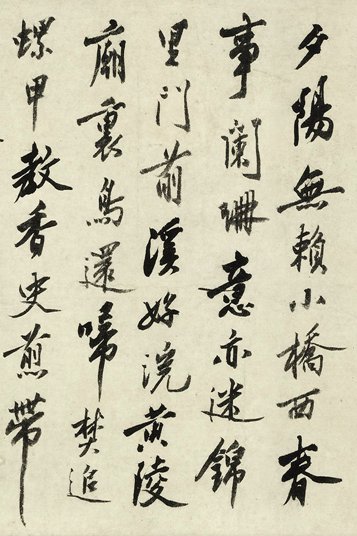 夕陽無賴小橋西春
事闌珊意亦迷錦
里門前溪好浣黄陵
廟裏鳥還啼焚追
螺甲教香史煎帶